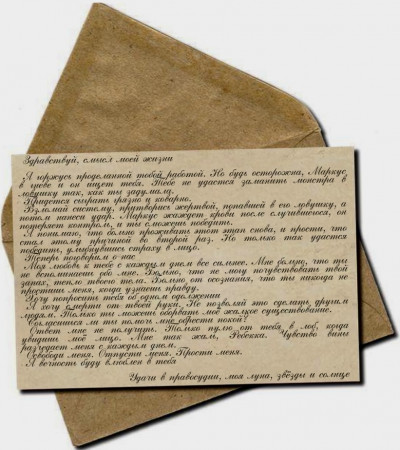 Здравствуй, смысл моей жизни
Я горжусь проделанной тобой работой. Но будь осторожна, Маркус
в гневе и он ищет тебя. Тебе не удастся заманить монстра в
ловушку так, как ты задумала.
Придется сыграть грязно и коварно.
Взломай систему, притворись жертвой, попавшей в его ловушку, а
потом нанеси удар. Маркус жаждет крови после случившегося, он
потеряет контроль, и ты сможешь победить.
Я понимаю, что больно проживать этот этап снова, и прости, что
стал этому причиной во второй раз. Но только так удастся
победить, улыбнувшись страху в лицо.
Теперь поговорим о нас
Моя любовь к тебе с каждым днем все сильнее. Мне больно, что ты
не вспоминаешь обо мне. Больно, что не могу почувствовать твой
запах, тепло твоего тела. Больно от осознания, что ты никогда не
простишь меня, когда узнаешь правду.
Хочу попросить тебя об одном одолжении
Я хочу смерти от твоей руки. Не позволяй это сделать другим
людям. Только ты можешь оборвать моё жалкое существование.
Согласишься ли ты помочь мне обрести покой?
Ответ мне не получить. Только пулю от тебя в лоб, когда
увидишь моё лицо. Мне так жаль, Ребекка. Чувство вины
разъедает меня с каждым днем.
Освободи меня. Отпусти меня. Прости меня.
Я вечность буду влюблен в тебя
Удачи в правосудии, моя луна, звёзды и солнце